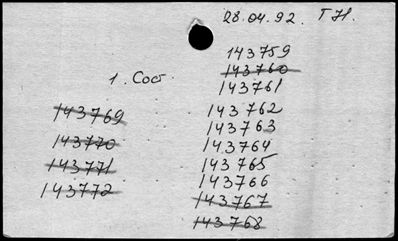 28.04.92. Т Н.
1. Сост.
143759
143760
143761
143762
143763
143764
143765
143766
143767
143768
143769
143770
143771
143772